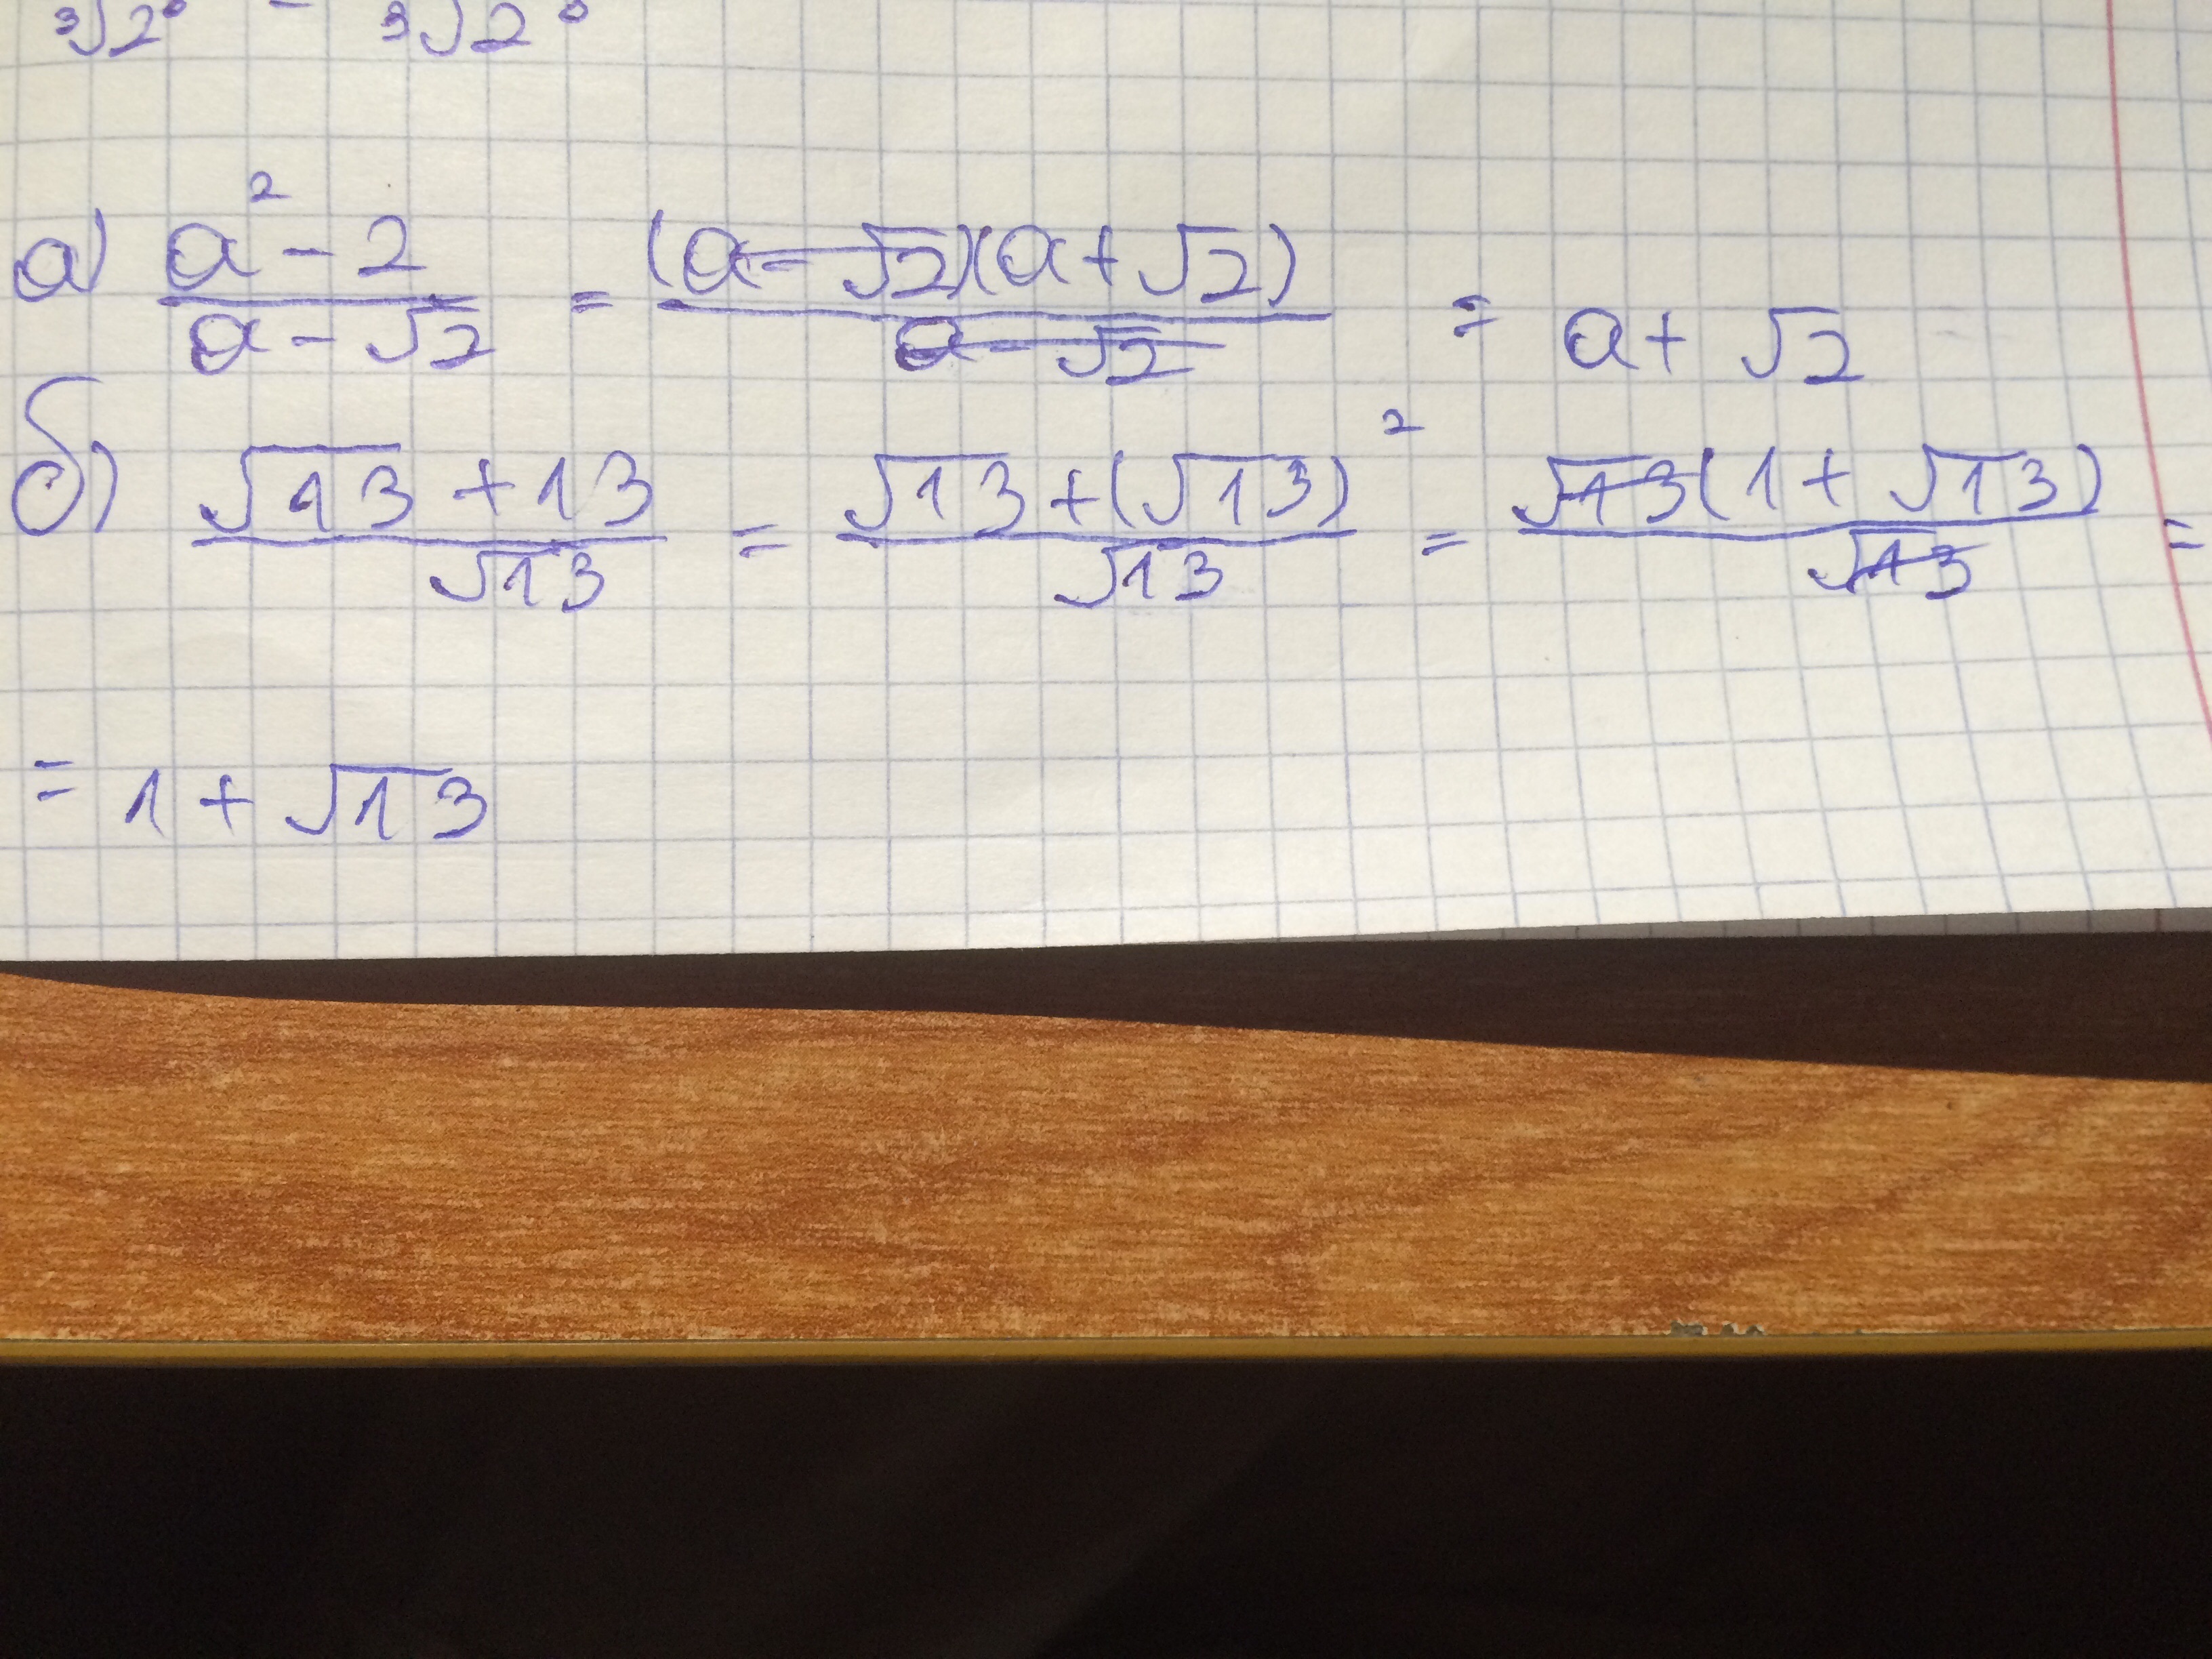 ³√2⁰ - ³√2⁰
а) (a² - 2)/(a - √2) = ((a - √2)(a + √2))/(a - √2) = a + √2
б) (√13 + 13)/√13 = (√13 + (√13)²)/√13 = (√13(1 + √13))/√13 =
= 1 + √13